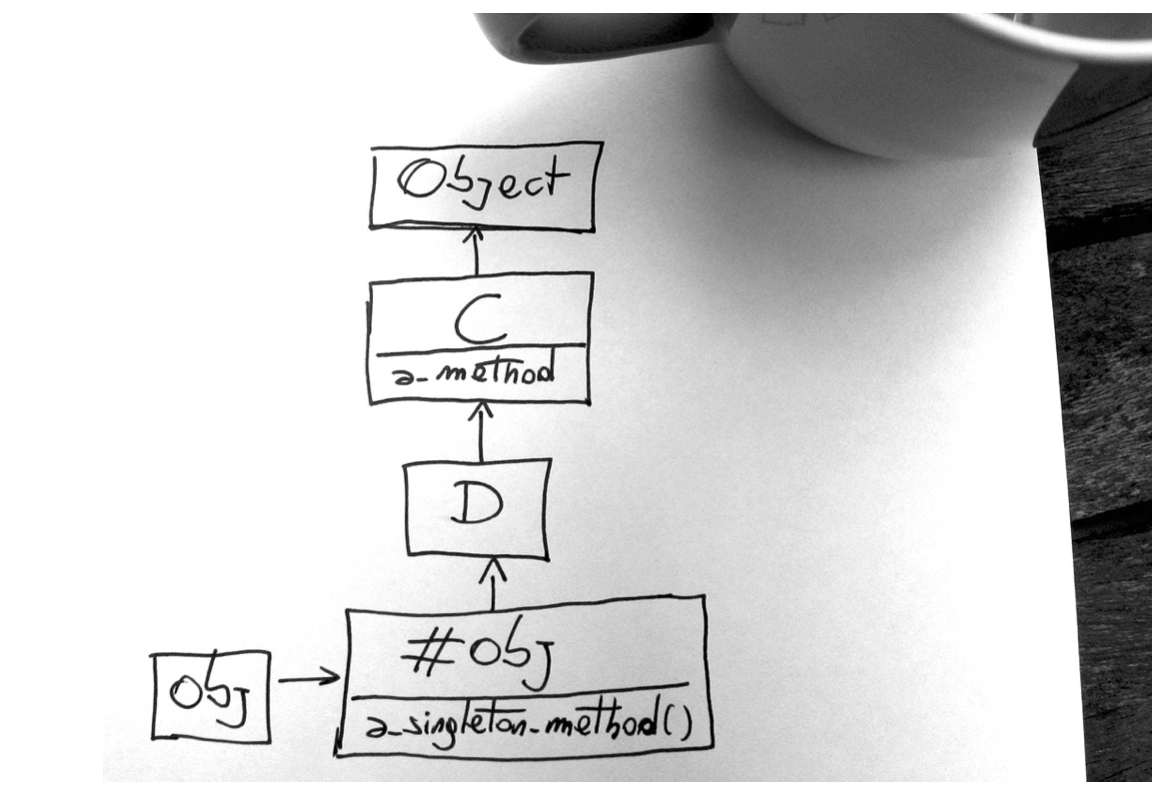 Object
C
a_method
D
#obj
obj
a_singleton_method()